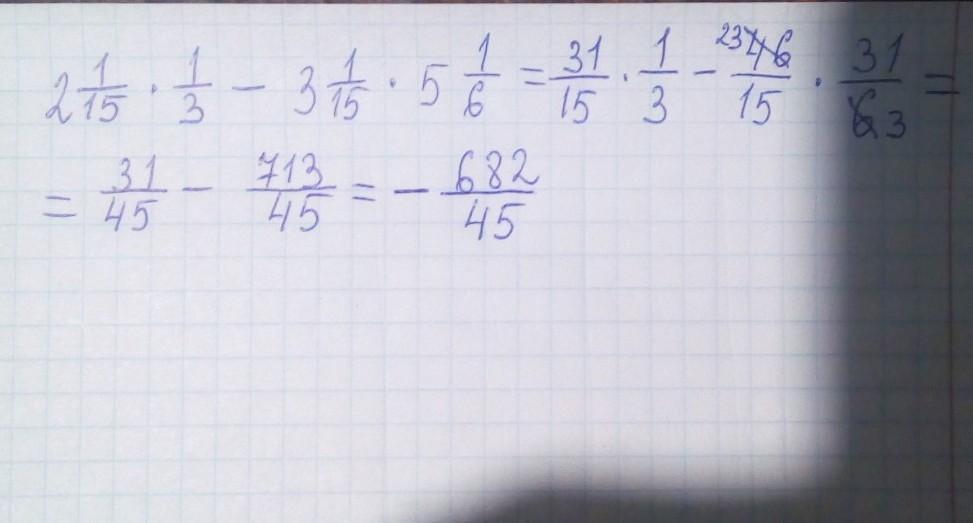 2 1/15 · 1/3 − 3 1/15 · 5 1/6 = 31/15 · 1/3 − 23 46/15 · 31/6 3 =
= 31/45 − 713/45 = − 682/45